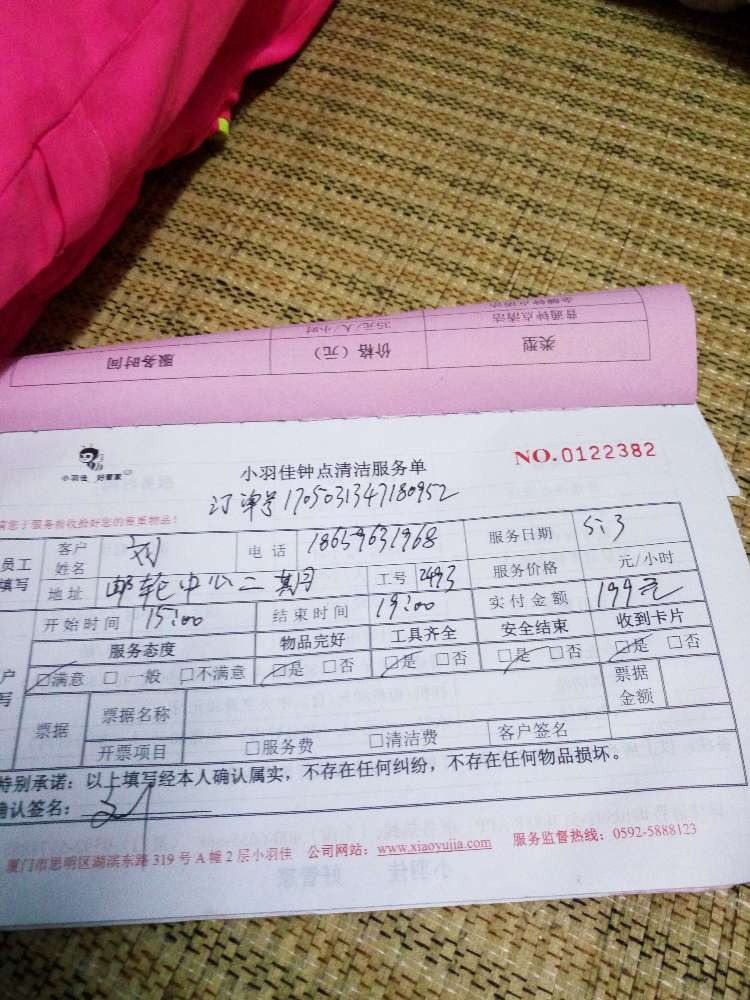 金牌钟点清洁
普通钟点清洁 35元/人/小时
类型 价格（元） 服务时间
小羽佳 好管家
小羽佳钟点清洁服务单 NO.0122382
订单号 1705031347180952
请您于服务前收拾好您的贵重物品！
员工填写 客户姓名 刘 电话 18659631968 服务日期 5:3
地址 邮轮中心二期 工号 2493 服务价格 元/小时
开始时间 15:00 结束时间 19:00 实付金额 199元
服务态度 物品完好 工具齐全 安全结束 收到卡片
☑满意 □一般 □不满意 ☑是 □否 ☑是 □否 ☑是 □否 ☑是 □否
票据 票据名称 票据金额
开票项目 □服务费 □清洁费 客户签名
特别承诺：以上填写经本人确认属实，不存在任何纠纷，不存在任何物品损坏。
确认签名： 刘
厦门市思明区湖滨东路319号A幢2层小羽佳 公司网站：www.xiaoyujia.com 服务监督热线：0592-5888123